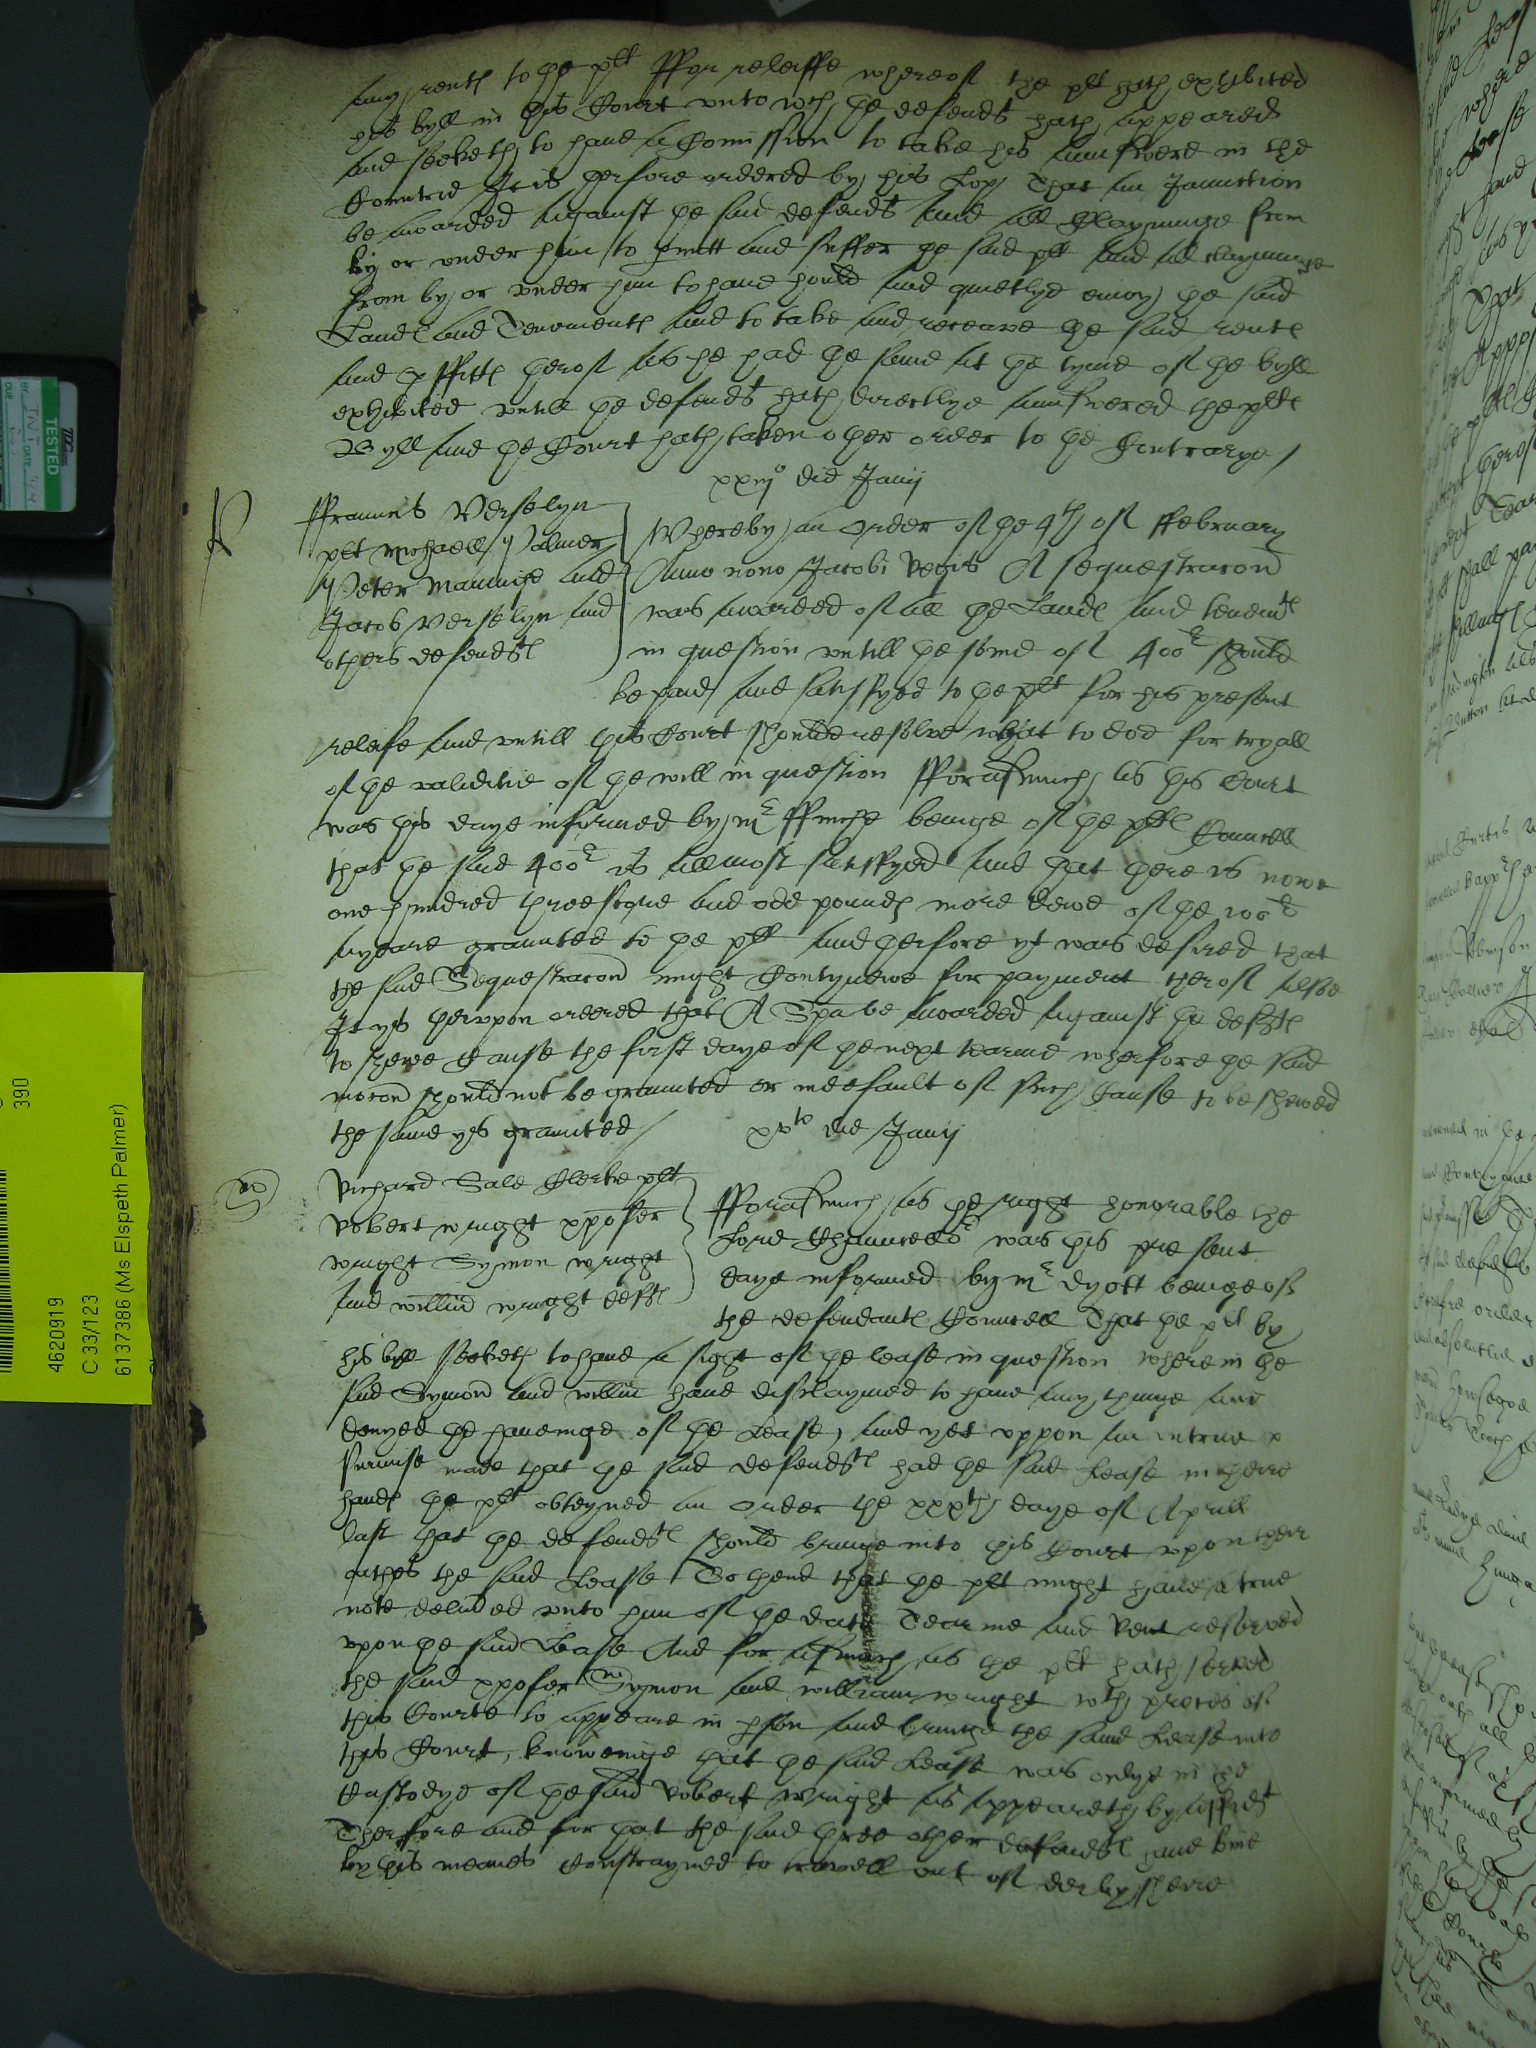 any rentℓ to the plt ffor releiffe whereof the plt hath exhibited
his byll in this Court vnto wch the defendt hath appeared
and seeketh to haue a Comission to take his aunswere in the
Countrie It is therfore ordered by his Lop That an Iniunction
be awarded against the said defendt and all Clayminge from
by or vnder him to pmitt and suffer the said plt and all clayminge
from by or vnder him to haue hould and quietlye enioy the said
Landℓ and Tenementℓ and to take and receave the said rentℓ
and pffittℓ therof as he had the same at the tyme of the byll
exhibited vntill the defendt hath directlye aunswered the pltℓ
Byll and the Court hath taken other order to the Contrarye /
xxiijo die Junij
ffrauncis Verselyn
plt Michaell Palmer
Peter Manninge and
Jacob Verselyn and
others defendtℓ
Whereby an Order of the 4th of ffebruary
Anno nono Jacobi Regis A sequestracon
was awarded of all the Landℓ and tenemtℓ
in question vntill the some of 400li should
be paid and satisfyed to the plt for his present
releife and vntill this Court should resolve what to doe for tryall
of the validitie of the will in question fforasmuch as this Court
was this daye informed by mr ffinche beinge of the pltℓ Councell
that the said 400li is allmost satisfyed and that there is nowe
one hundred threescore and odd poundℓ more dewe of the 100li
a yeare graunted to the plt and therfore yt was desired that
the said Sequestracon might Contynewe for payment therof alsoe
It ys therupon ordered that A Spa be awarded against the deftℓ
to shewe Cause the first daye of the next tearme wherfore the said
mocon should not be graunted or in default of such Cause to be shewed
the same ys graunted /
xxto die Junij
Richard Sale Clerke plt
Robert Wright xpofer
Wright Symon Wright
and Willm Wright deftℓ
fforasmuch as the right honorable the
Lord Chauncellor was this present
daye informed by mr Dyott beinge of
the defendantℓ Councell That the plt by
his byll seeketh to haue a sight of the lease in question wherein the
said Symon and Willm haue disclaymed to haue any thinge and
denyed the haueinge of the Lease, and yet vppon an vntrue
surmise made that the said defendtℓ had the said Lease in there
handℓ the plt obteyned an order the xxxth daye of Aprill
last that the defendtℓ should bringe into this Court vpon their
oathes the said Lease To thend that the plt might haue a true
note deliuᵉred vnto him of the date Tearme and Rent reserved
vpon the said Lease And for asmuch as the plt hath served
the said xpofer Symon and William wright wth proces of
this Courte to appeare in pson and bringe the same Lease into
this Court, knoweinge that the said Lease was onlye in the
Custodye of the said Robert Wright as appeareth by affidt
Therfore and for that the said three other defendtℓ haue bine
by this meanes Constrayned to travell out of derbyshere
TESTED
BY
DATE
DUE
390
4620919
C 33/123
6137386 (Ms Elspeth Palmer)